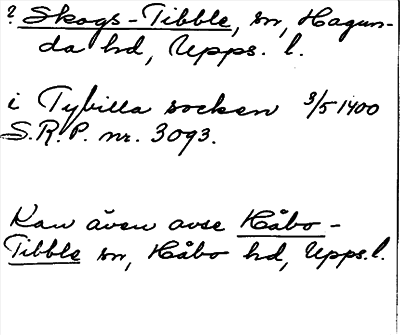 ? Skogs-Tibble, sn, Hagun-
da hd, Upps. l.
i Tybilla socken 3/5 1400
S.R.P. nr. 3093.
Kan även avse Håbo-
Tibble sn, Håbo hd, Upps.l.